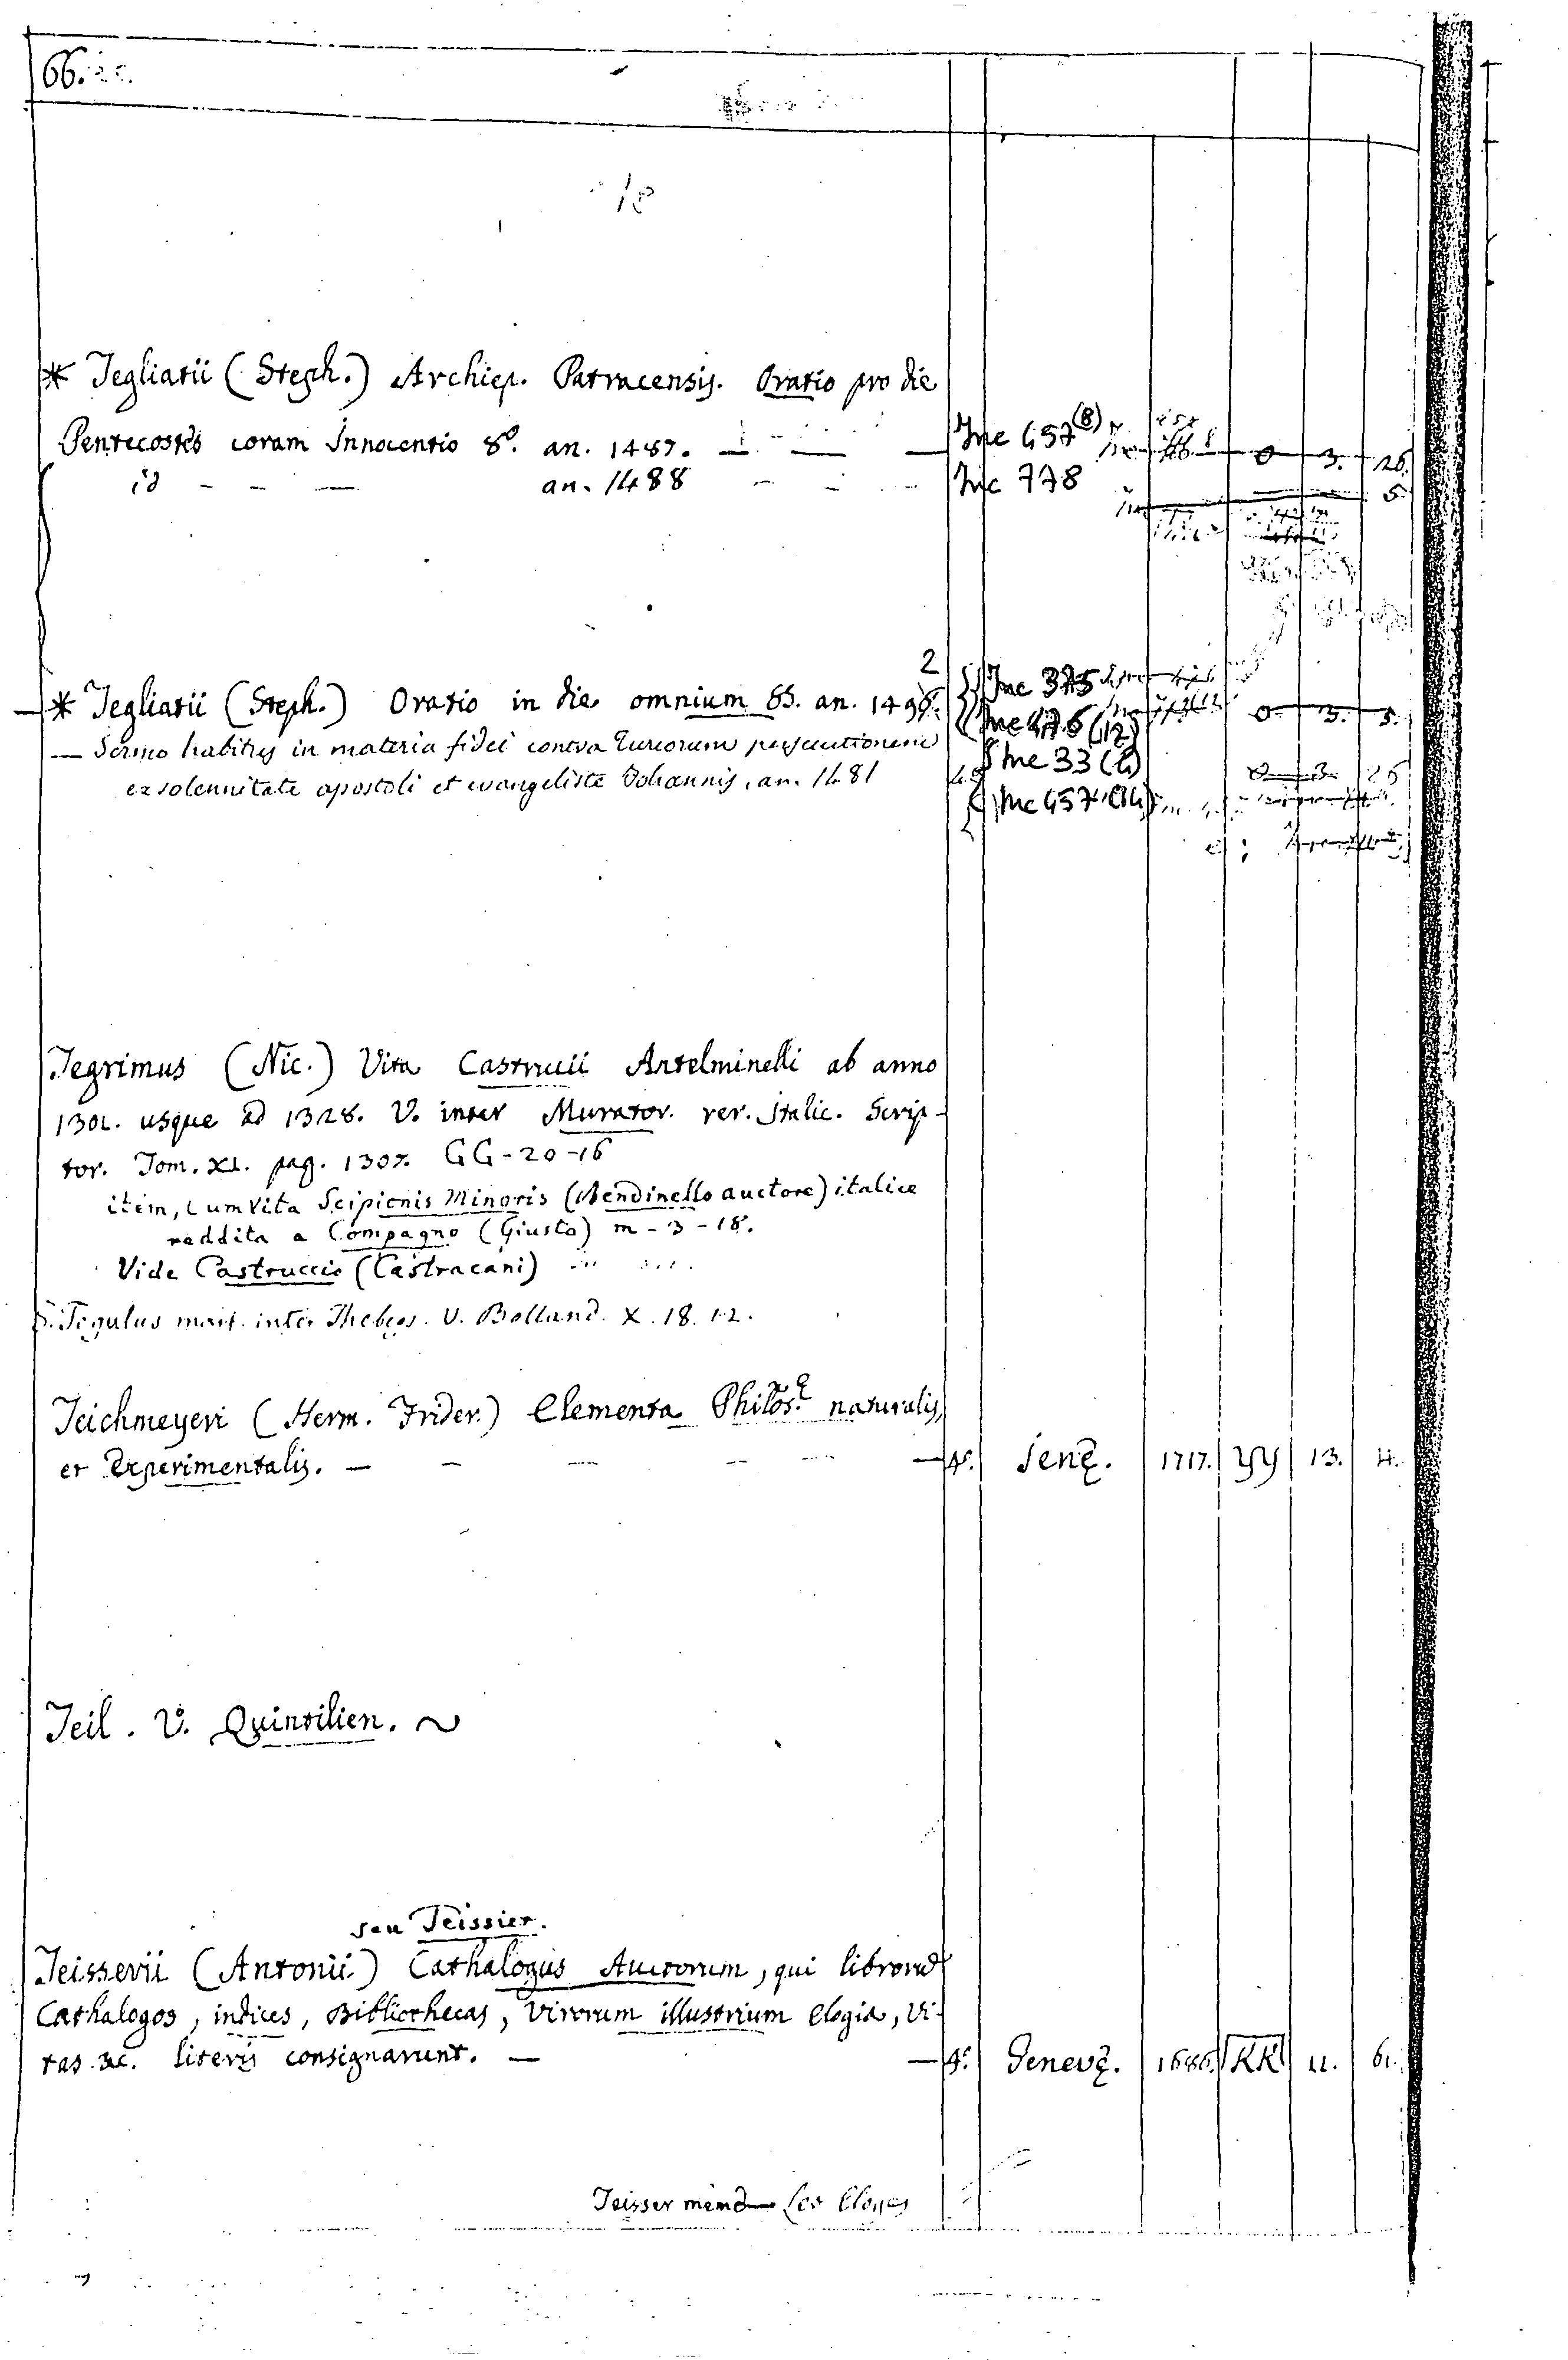 66.
* Tegliatii (Steph.) Archiep. Patracensis. Oratio pro die
Pentecostes coram Innocentio 8º. an. 1487. — — — Inc 457 (8) 0 3. 26.
id — — — an. 1488 — — — Inc 778 5.
2
* Tegliatii (Steph.) Oratio in die omnium SS. an. 1496. Inc 375 0. 3. 5.
Inc 476 (12)
— Sermo habitus in materia fidei contra Turcorum persecutionem Inc 33 (4)
ex solennitate apostoli et evangeliste Johannis, an. 1481 Inc 457 (14)
Tegrimus (Nic.) Vita Castrucii Antelminelli ab anno
1301. usque ad 1328. V. inter Murator. rer. Italic. Scrip-
tor. Tom. XI. pag. 1307. GG-20-16
item, cum vita Scipionis Minoris (Bendinello auctore) italice
reddita a Compagno (Giusto) m-3-18.
Vide Castruccio (Castracani)
S. Tegulus mart. inter Thebeos. V. Bolland. X. 18. 12.
Teichmeyeri (Herm. Frider.) Elementa Philos.ę naturalis,
et Experimentalis. — — — — — — 4º. Jenę. 1717. YY 13. 4.
Teil. V. Quintilien.
seu Teissier.
Teisserii (Antonii) Cathalogus Auctorum, qui librorum
Cathalogos, indices, Bibliothecas, Virorum illustrium Elogia, Vi-
tas &c. literis consignarunt. — — 4º. Genevę. 1686. KK 11. 61.
Teisser Les Eloges